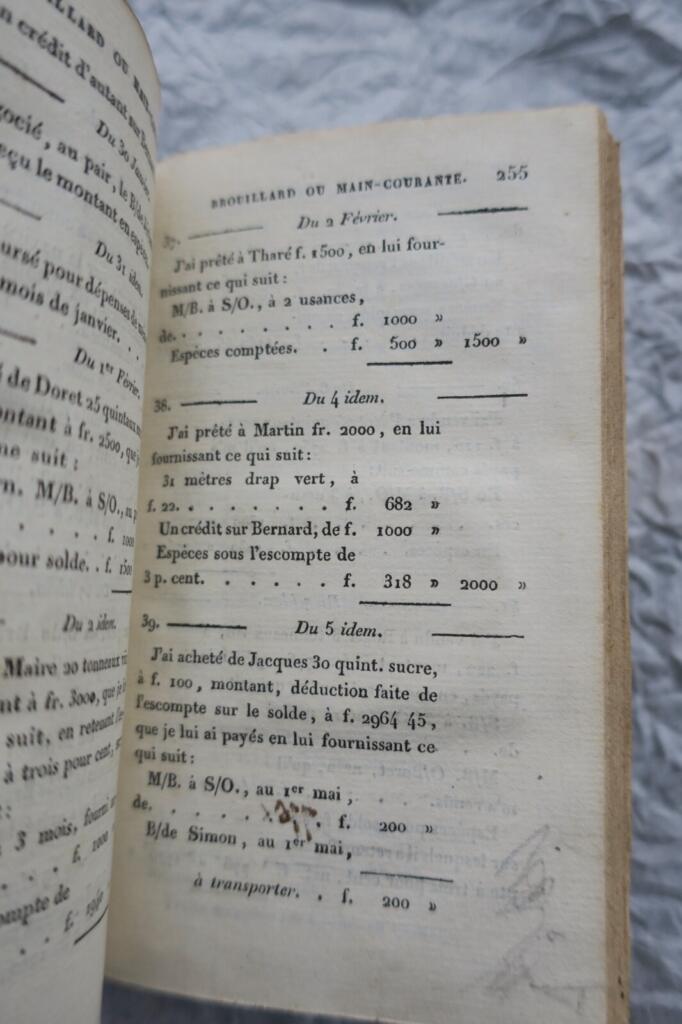 ILLARD OU
n crédit d'autant sur
Du 30 Janvier.
gocié, au pair, le B/de
eçu le montant en
Du 31 idem.
ursé pour dépenses de
mois de janvier. . .
Du 1er Février.
é de Doret 25 quintaux
ontant à fr. 2500, que
ne suit :
n. M/B. à S/O., au
. . . . . f. 1000
pour solde. . f. 1500
Du 2 idem.
Maire 20 tonneaux
nt à fr. 3000, que je
suit, en retenant
à trois pour cent,
:
3 mois, fourni
. . . f. 1000
ompte de
. . . f.
BROUILLARD OU MAIN-COURANTE. 255
37. Du 2 Février.
J'ai prêté à Tharé f. 1500, en lui four-
nissant ce qui suit :
M/B. à S/O., à 2 usances,
de. . . . . . . . . f. 1000 »
Espèces comptées. . f. 500 » 1500 »
38. Du 4 idem.
J'ai prêté à Martin fr. 2000, en lui
fournissant ce qui suit :
31 mètres drap vert, à
f. 22. . . . . . . . f. 682 »
Un crédit sur Bernard, de f. 1000 »
Espèces sous l'escompte de
3 p. cent. . . . . . f. 318 » 2000 »
39. Du 5 idem.
J'ai acheté de Jacques 30 quint. sucre,
à f. 100, montant, déduction faite de
l'escompte sur le solde, à f. 2964 45,
que je lui ai payés en lui fournissant ce
qui suit :
M/B. à S/O., au 1er mai,
de. . . . . . . . f. 200 »
B/de Simon, au 1er mai,
à transporter. . f. 200 »